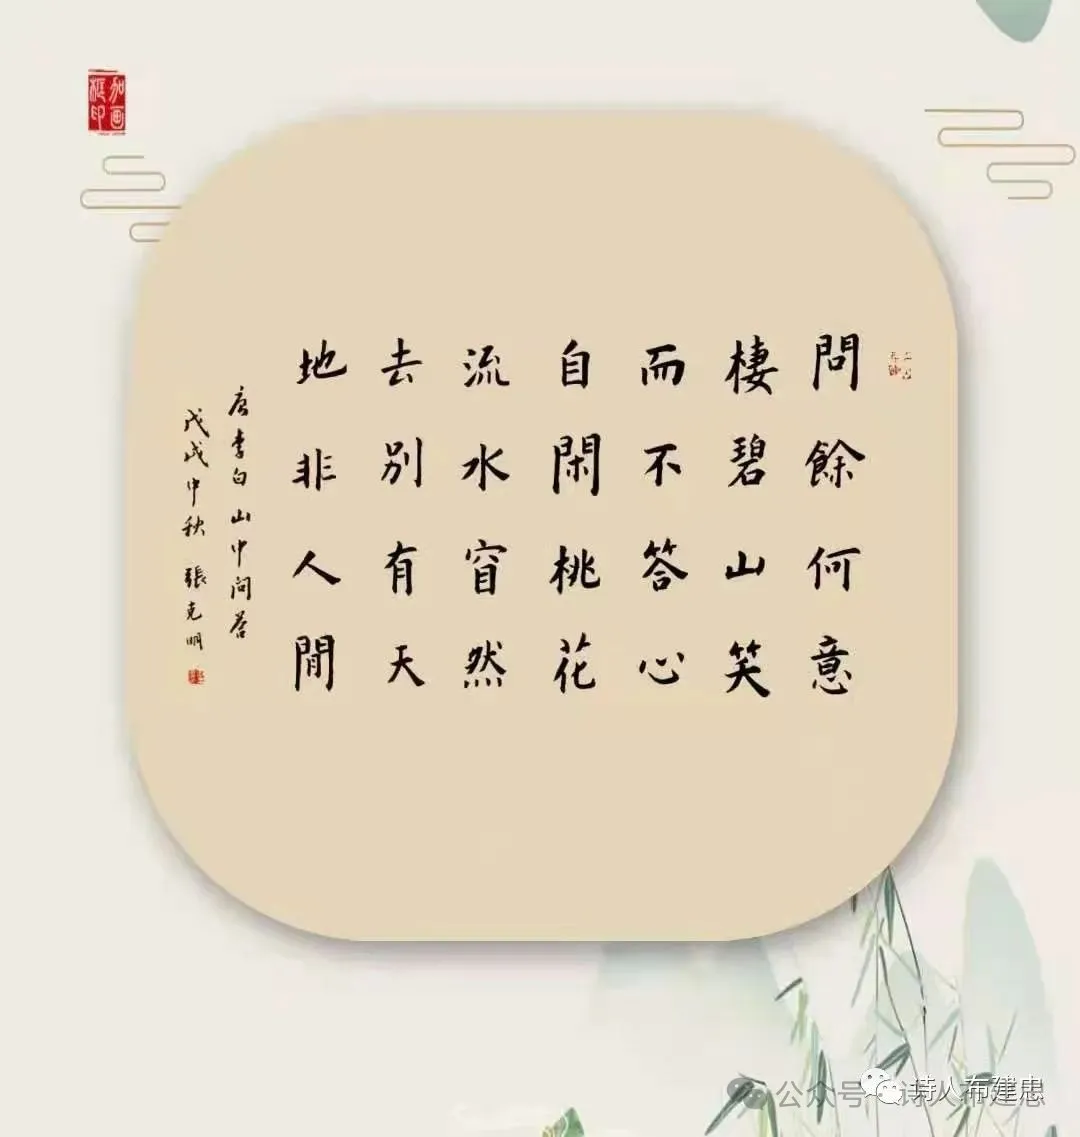 問餘何意
棲碧山笑
而不答心
自閑桃花
流水窅然
去別有天
地非人閒
唐李白山中问答
戊戌中秋 張克明
加画
框印
公众号 诗人布建忠
诗人布建忠